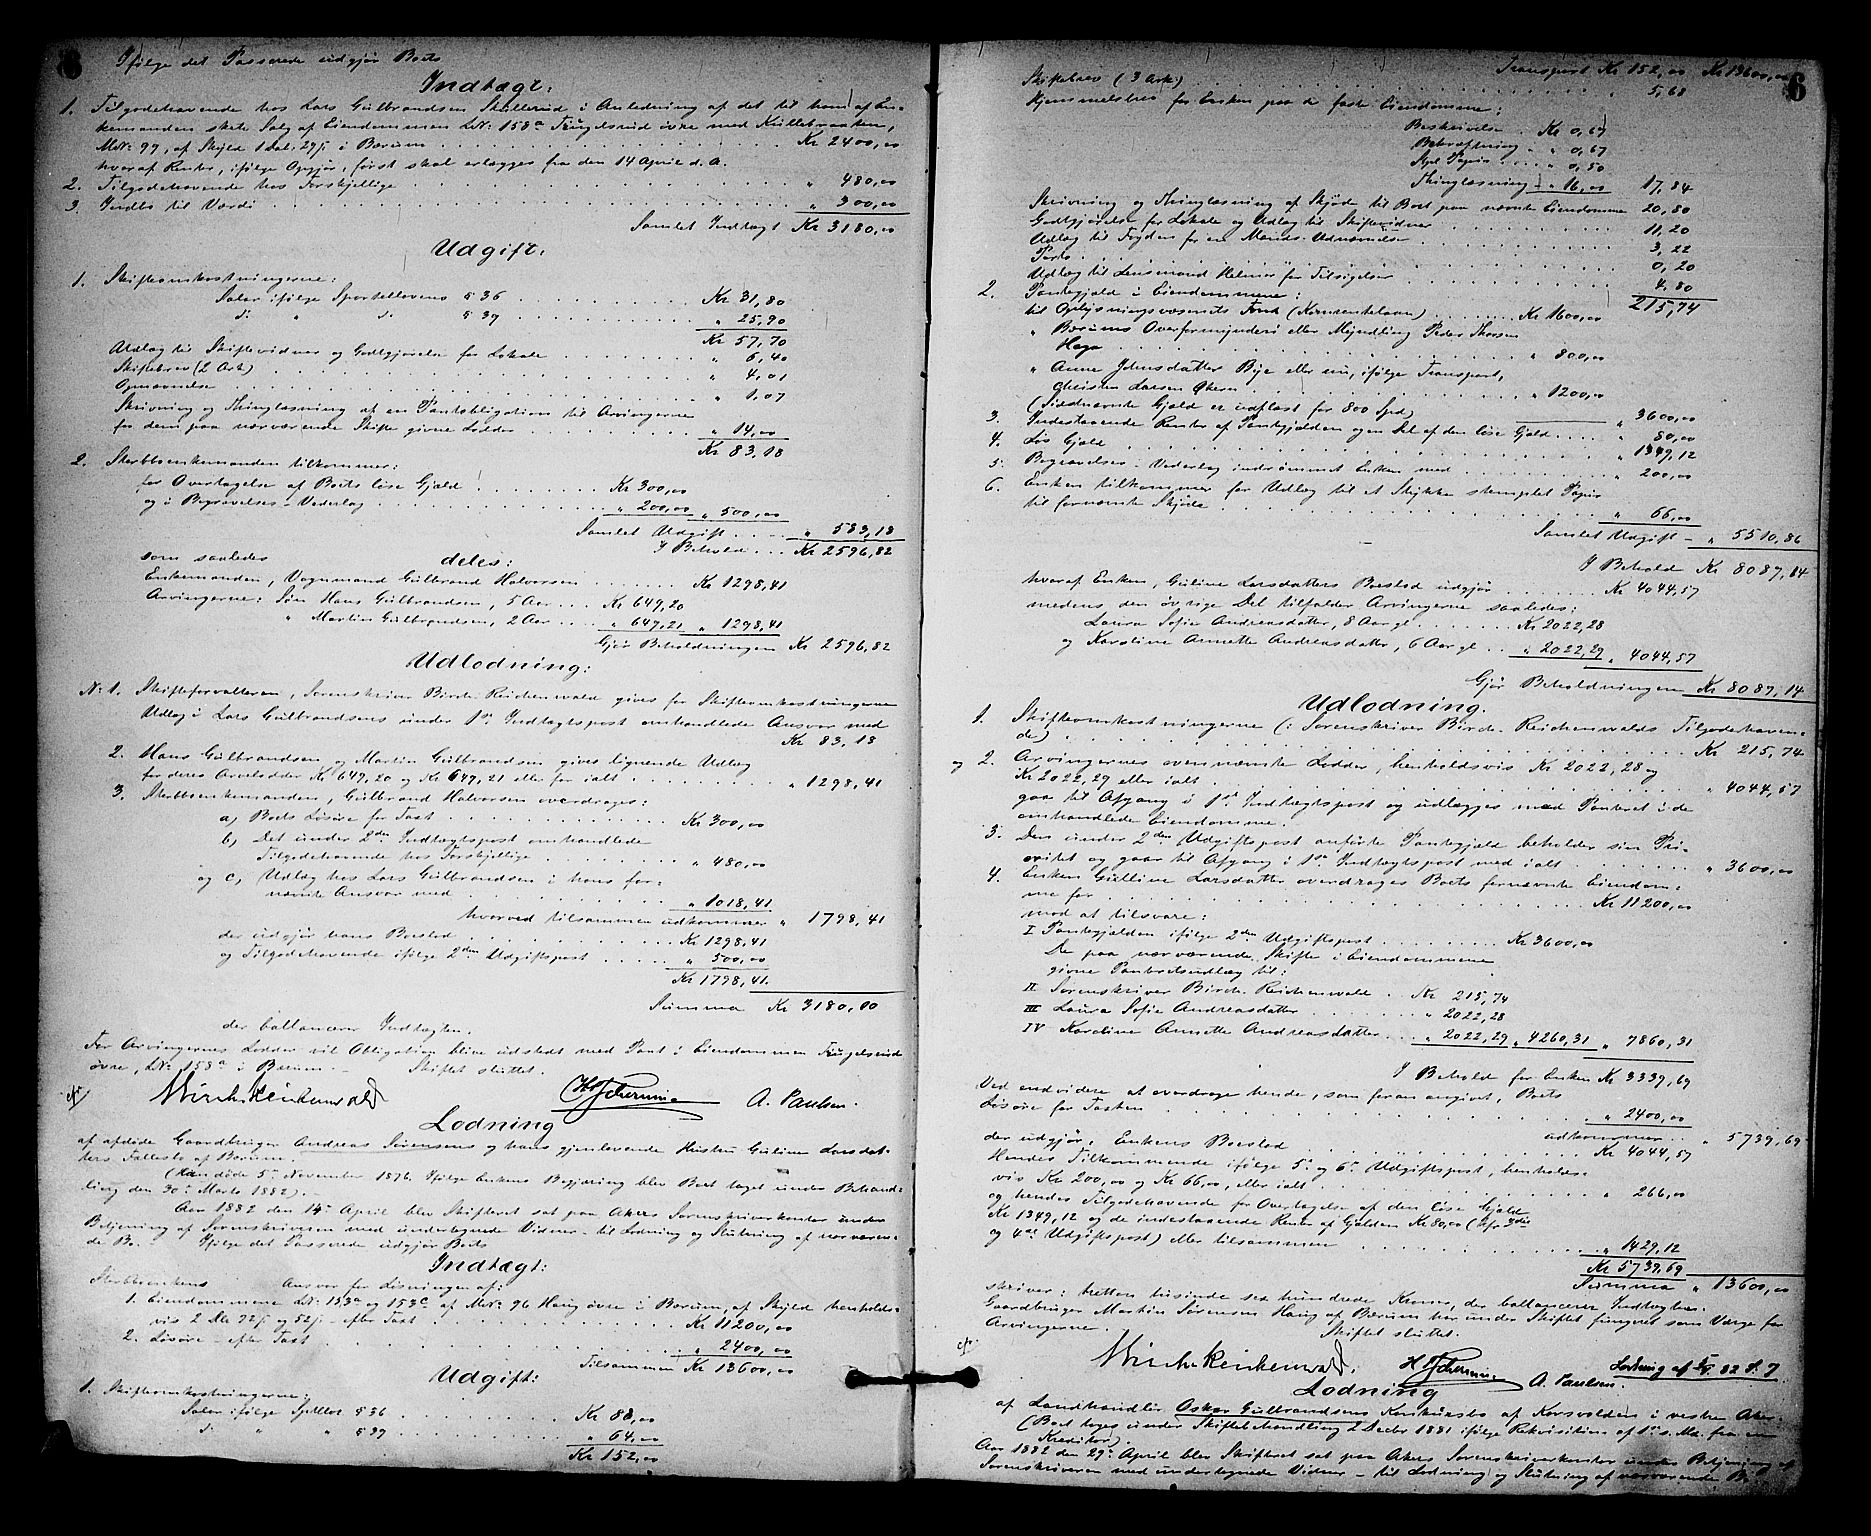 Ifølge det Passerede udgjør Boets
Indtægt:
1. Tilgodehavende hos Lars Gulbrandsen Skullerud i Anledning af det til ham af En-
kemanden skete Salg af Eiendommen LN: 158a Trugelsrud øvre med Kullebraaten,
MN: 97, af Skyld 1 Dal. 29 f i Bærum . . . Kr 2400,00
hvoraf Renter, ifølge Opgjør, først skal erlægges fra den 14 April d. A.
2. Tilgodehavende hos Forskjellige . . . " 480,00
3. Indbo til Værdi . . . " 300,00
Samlet Indtægt Kr 3180,00
Udgift:
1. Skifteomkostningerne:
Salær ifølge Sportellovens § 36 . . . Kr 31,80
d: " d: § 39 . . . " 25,90
Kr 57,70
Udlæg til Skiftevidner og Godtgjørelse for Lokale . . . " 6,40
Skiftebrev (2 Ark) . . . " 4,01
Opnævnelse . . . " 1,07
Skrivning og Thinglæsning af en Pantobligation til Arvingerne
for dem paa nærværende Skifte givne Lodder . . . " 14,00
Kr 83,18
2. Sterbboenkemanden tilkommer:
for Overtagelse af Boets løse Gjæld . . . Kr 300,00
og i Begravelses-Vederlag . . . " 200,00 " 500,00
Samlet Udgift . . . " 583,18
I Behold . . . Kr 2596,82
som saaledes deles:
Enkemanden, Vognmand Gulbrand Halvorsen . . . Kr 1298,41
Arvingerne: Søn Hans Gulbrandsen, 5 Aar . . . Kr 649,20
" Martin Gulbrandsen, 2 Aar . . . " 649,21 " 1298,41
Gjør Beholdningen Kr 2596,82
Udlodning:
No 1. Skifteforvalteren, Sorenskriver Birch-Reichenwald gives for Skifteomkostningerne
Udlæg i Lars Gulbrandsens under 1ste Indtægtspost omhandlede Ansvar med
Kr 83,18
2. Hans Gulbrandsen og Martin Gulbrandsen gives lignende Udlæg
for deres Arvelodder Kr 649,20 og Kr 649,21 eller for ialt . . . " 1298,41
3. Sterbboenkemanden, Gulbrand Halvorsen overdrages:
a) Boets Løsøre for Taxt . . . Kr 300,00
b) Det under 2den Indtægtspost omhandlede
Tilgodehavende hos Forskjellige . . . " 480,00
og c) Udlæg hos Lars Gulbrandsen i hans for-
nævnte Ansvar med . . . " 1018,41
hvorved tilsammen udkommer " 1798,41
der udgjør hans Boeslod . . . Kr 1298,41
og Tilgodehavende ifølge 2den Udgiftspost . . . " 500,00
Kr 1798,41
Summa Kr 3180,00
der ballancerer Indtægten.
For Arvingernes Lodder vil Obligation blive udstedt med Pant i Eiendommen Trugelsrud
øvre, LN: 158a i Bærum. – Skiftet sluttet.
Birch-Reichenwald H Scheruma A. Paulsen.
Lodning
af afdøde Gaardbruger Andreas Sørensens og hans gjenlevende Hustru Guline Larsdat-
ters Fællesbo af Bærum.
(Han døde 5te November 1876. Ifølge Enkens Begjæring blev Boet taget under Behand-
ling den 30te Marts 1882). –
Aar 1882 den 14de April blev Skifteret sat paa Akers Sorenskriverkontor under
Betjening af Sorenskriveren med undertegnede Vidner – til Lodning og Slutning af nærværen-
de Bo. Ifølge det Passerede udgjør Boets
Indtægt:
Sterbboenkens Ansvar for Løsningen af:
1. Eiendommene LN: 153a og 153c af MN: 96 Haug øvre i Bærum, af Skyld henholds-
vis 2 Dlr 72 f og 52 f – efter Taxt . . . Kr 11200,00
2. Løsøre – efter Taxt . . . " 2400,00
Tilsammen Kr 13600,00
Udgift:
1. Skifteomkostningerne:
Salær ifølge Sptllov § 36 . . . Kr 88,00
d: " " § 39 . . . " 64,00
Kr 152,00
6
Transport Kr 152,00 Kr 13600,00
Skiftebrev (3 Ark) . . . " 5,68
Hjemmelsbrev for Enken paa de faste Eiendomme:
Beskrivelse . Kr 0,67
Bekræftning " 0,67
Stpl Papir . . " 0,50
Thinglæsning " 16,00 17,84
Skrivning og Thinglæsning af Skjøde til Boet paa nævnte Eiendomme 20,80
Godtgjørelse for Lokale og Udlæg til Skiftevidner . . . 11,20
Udlæg til Fogden for en Mands-Udnævnelse . . . 3,22
Porto . . . 0,20
Udlæg til Lensmand Helmer for Tilsigelser . . . 4,80
215,74
2. Pantegjæld i Eiendommene:
til Oplysningsvæsenets Fond (Kornrenteloven) . . . Kr 1600,00
" Bærums Overformynderi eller Myndling Peder Thorsen
Haga . . . " 800,00
" Anne Johnsdatter Bye eller nu, ifølge Transport,
Christen Larsen Økern . . . " 1200,00
(Sidstnævnte Gjæld er udfløst for 800 Spd) " 3600,00
3. Indestaaende Renter af Pantegjælden og en Del af den løse Gjæld . . . " 80,00
4. Løs Gjæld . . . " 1349,12
5. Begravelses-Vederlag indrømmet Enken med . . . " 200,00
6. Enken tilkommer for Udlæg til et Stykke stemplet Papir
til fornævnte Skjøde . . . " 66,00
Samlet Udgift – " 5510,86
I Behold Kr 8089,14
hvoraf Enken, Guline Larsdatters Boeslod udgjør . . . Kr 4044,57
medens den øvrige Del tilfalder Arvingerne saaledes:
Laura Sofie Andreasdatter, 8 Aar gl . . . Kr 2022,28
og Karoline Annette Andreasdatter, 6 Aar gl . . " 2022,29 " 4044,57
Gjør Beholdningen Kr 8089,14
Udlodning.
1. Skifteomkostningerne (: Sorenskriver Birch-Reichenwalds Tilgodehaven-
de) . . . Kr 215,74
og 2. Arvingernes ovennævnte Lodder, henholdsvis Kr 2022,28 og
Kr 2022,29 eller ialt . . . " 4044,57
gaa til Afgang i 1ste Indtægtspost og udlægges med Panteret i de
omhandlede Eiendomme.
3. Den under 2den Udgiftspost anførte Pantegjæld beholder sin Pri-
oritet og gaar til Afgang i 1ste Indtægtspost med ialt . . . " 3600,00
4. Enken Guline Larsdatter overdrages Boets fornævnte Eiendom-
me for . . . Kr 11200,00
mod at tilsvare:
I Pantegjælden ifølge 2den Udgiftspost . . . Kr 3600,00
De paa nærværende Skifte i Eiendommene
givne Panteretsudlæg til:
II Sorenskriver Birch-Reichenwald . . Kr 215,74
III Laura Sofie Andreasdatter . . . " 2022,28
IV Karoline Annette Andreasdatter . . . " 2022,29 " 4260,31 " 7860,31
I Behold for Enken Kr 3339,69
Ved endvidere at overdrage hende, som foran angivet, Boets
Løsøre for Taxten . . . " 2400,00
udkommer . . " 5739,69
der udgjør: Enkens Boeslod . . . Kr 4044,57
Hendes Tilkommende ifølge 5te og 6te Udgiftspost, henholds-
vis Kr 200,00 og Kr 66,00, eller ialt . . . " 266,00
og hendes Tilgodehavende for Overtagelse af den løse Gjæld
Kr 1349,12 og de indestaaende Renter af Gjælden Kr 80,00 (cfr 3die
og 4de Udgiftspost) eller tilsammen . . . " 1429,12
Kr 5739,69
Summa " 13600,00
skriver: tretten tusinde sex hundrede Kroner, der ballancerer Indtægten.
Gaardbruger Martin Sørensen Haug af Bærum har under Skiftet fungeret som Værge for
Arvingerne. Skiftet sluttet.
Birch-Reichenwald. H Scheruma A. Paulsen.
Lodning
af Landhandler Oskar Gulbrandsens Konkursbo af Korsvolden i vestre Aker.
(Boet toges under Skiftebehandling 2 Decbr 1881 ifølge Rekvisition af 1ste s. Md. fra en
Kreditor).
Aar 1882 den 29de April blev Skifteret sat paa Akers Sorenskriverkontor under Betjening af
Sorenskriveren med undertegnede Vidner – til Lodning og Slutning af nærværende Bo